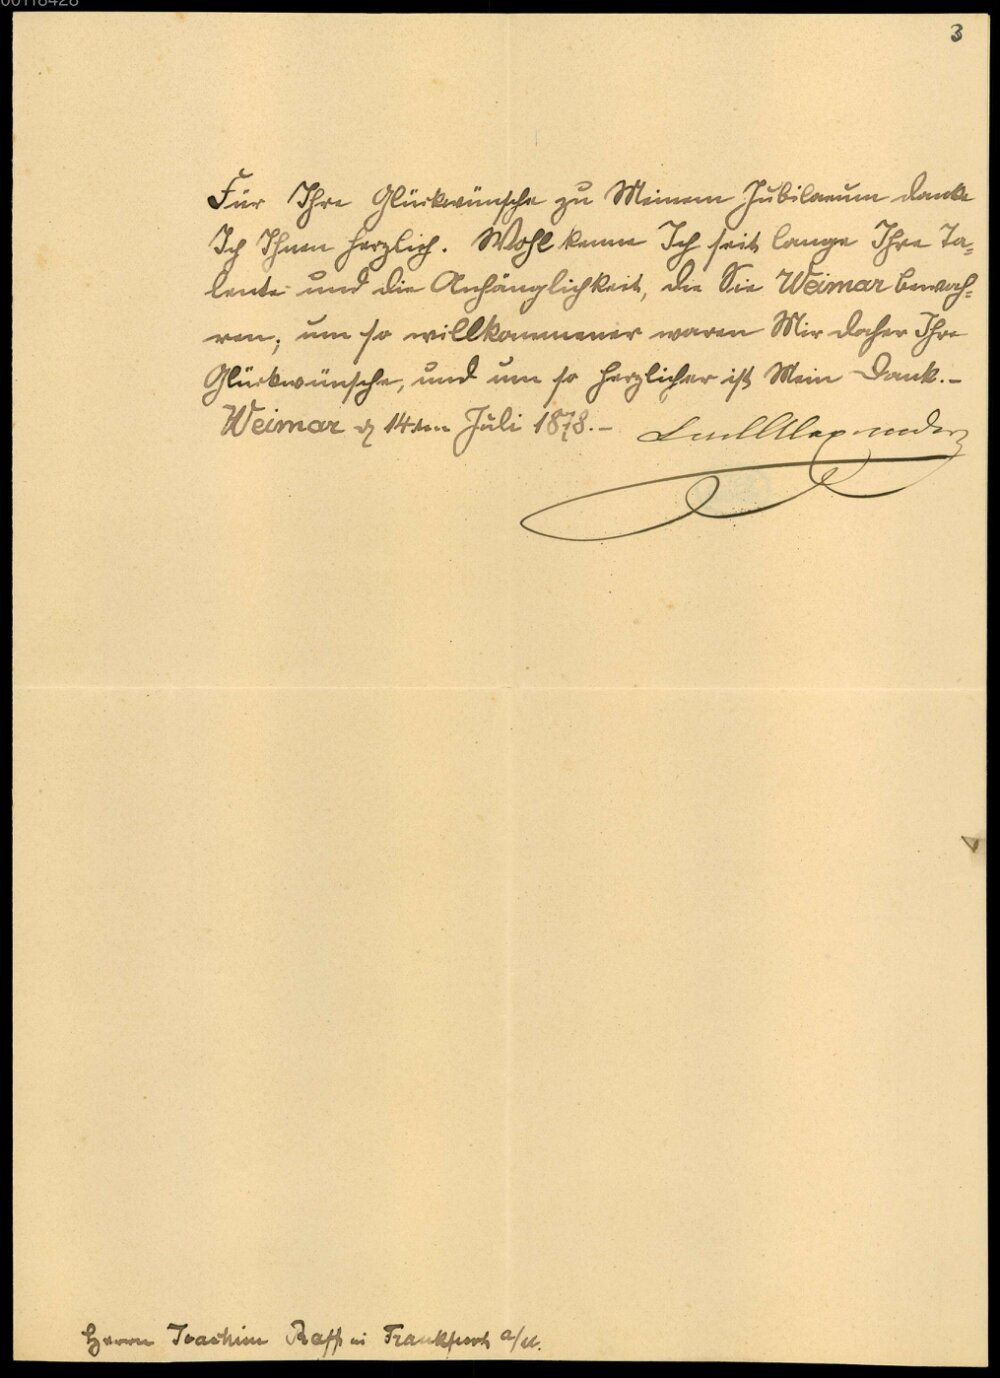 00118428
3
Für Ihre Glückwünsche zu Meinem Jubilaeum danke
Ich Ihnen herzlich. Wohl kenne Ich seit lange Ihre Ta=
lente und die Anhänglichkeit, die Sie Weimar bewah=
ren; um so willkommener waren Mir daher Ihre
Glückwünsche, und um so herzlicher ist Mein Dank.-
Weimar d 14ten Juli 1878.-
Carl Alexander
Herrn Joachim Raff in Frankfurt a/M.